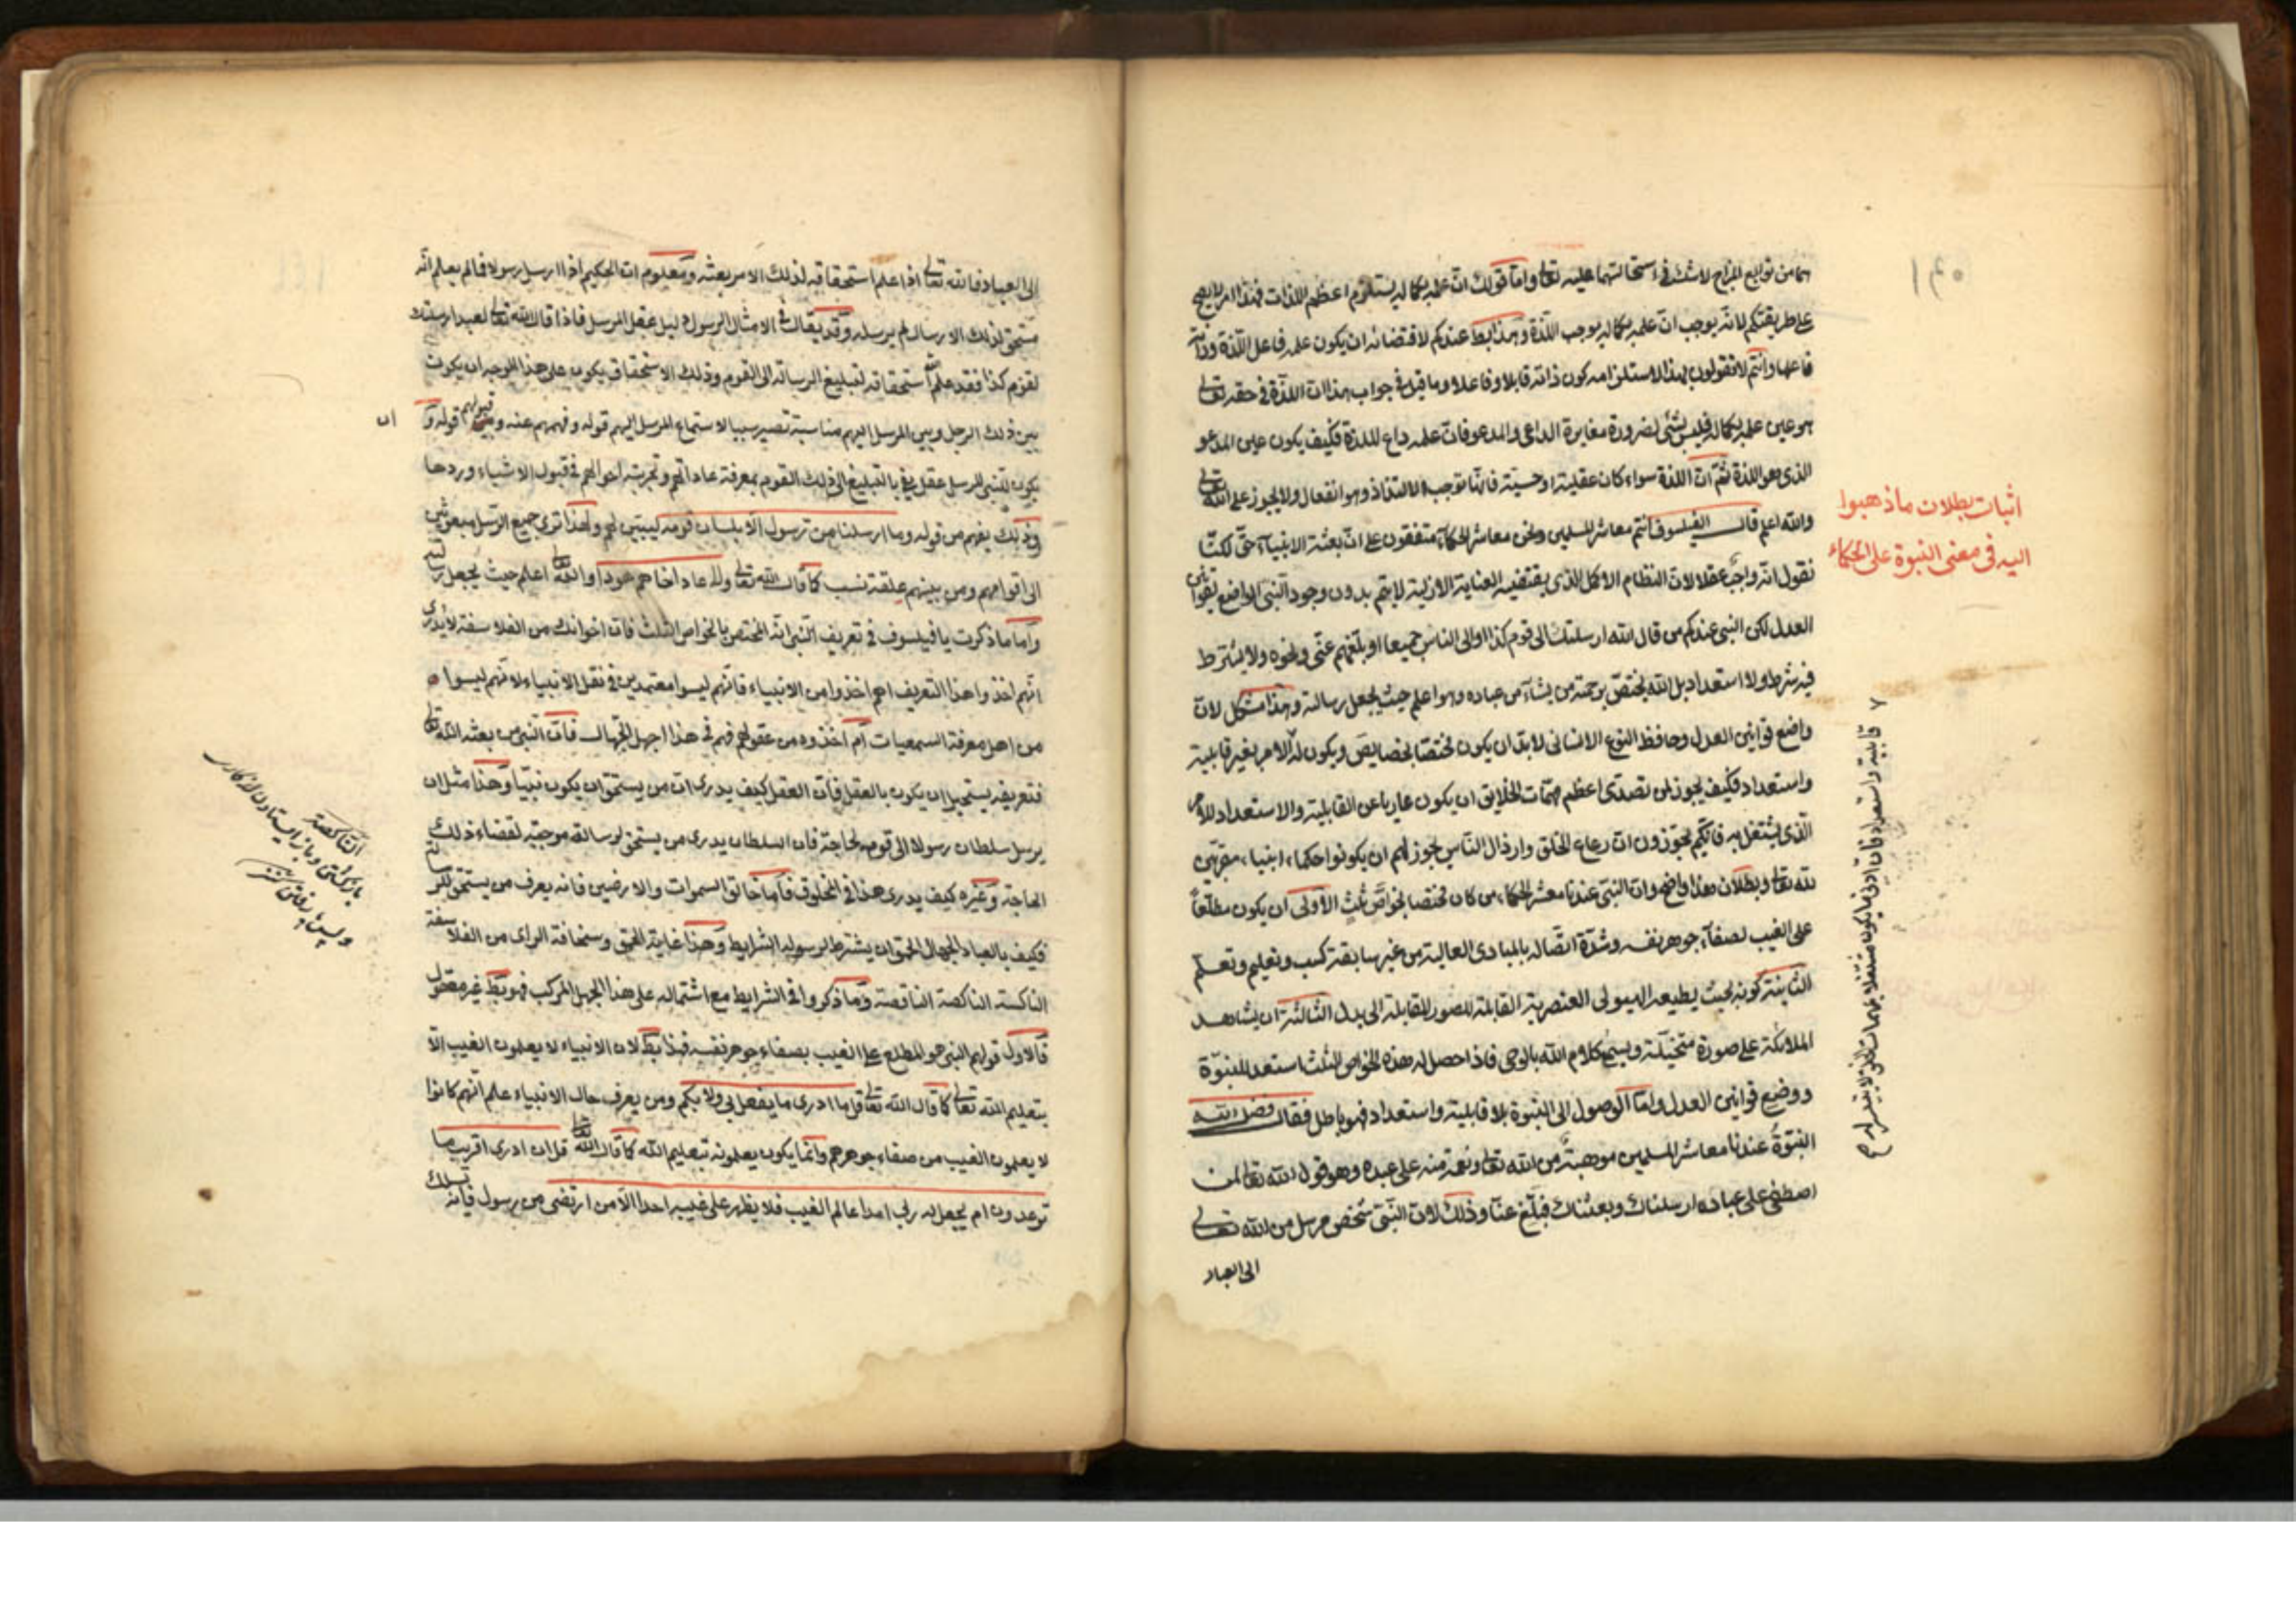 هما من توابع المزاج لا شك في استحالتهما عليه تعالى واما قولك ان علمه بكماله يستلزم اعظم اللذات فهذا امر لا يصح
على طريقتكم لانه يوجب ان علمه بكماله يوجب اللذة وهذا بط عندكم لاقتضائه ان يكون علمه فاعل اللذة وذاته
فاعلها وانتم لا تقولون بهذا لاستلزامه كون ذاته قابلا وفاعلا وما قيل في جواب هذا ان اللذة في حقه تعالى
هو عين علمه بكماله فليس بشئ لضرورة مغايرة الداعى والمدعو فان علمه داع للذة فكيف يكون عين المدعو
الذى هو اللذة ثم ان اللذة سواء كان عقلية او حسية فانها توجب الالتذاذ وهو انفعال ولا يجوز على الله تعالى
والله اعلم قال الفيلسوف انتم معاشر المسلمين ونحن معاشر الحكماء متفقون على ان بعثة الانبياء حق لكنا
نقول انه واجب عقلا لان النظام الاكمل الذى يقتضيه العناية الازلية لا يتم بدون وجود النبى الواضع لقوانين
العدل لكن النبى عندكم من قال الله ارسلتك الى قوم كذا او الى الناس جميعا او بلغهم عنى ونحوه ولا يشترط
فيه شرط ولا استعداد بل الله يختص برحمته من يشاء من عباده وهو اعلم حيث يجعل رسالته وهذا مشكل لان
واضع قوانين العدل وحافظ النوع الانسانى لا بد ان يكون مختصا بخصايص ويكون له الامر بغير قابلية
واستعداد فكيف يجوز لمن تصدى اعظم مهمات الخلايق ان يكون عاريا عن القابلية والاستعداد للامر
الذى يشتغل به فانكم تجوزون ان رعاع الخلق وارذال الناس يجوز لهم ان يكونوا حكماء انبياء مقربين
لله تعالى وبطلان هذا واضح وان النبى عندنا معشر الحكماء من كان مختصا بخواص ثلث الاولى ان يكون مطلعا
على الغيب لصفاء جوهر نفسه وشدة اتصاله بالمبادى العالية من غير سابقة كسب وتعليم وتعلم
الثانية كونه بحيث يطيعه الهيولى العنصرية القابلة للصور المقابلة الى بدل الثالثة ان يشاهد
الملائكة على صورة متخيلة ويسمع كلام الله بالوحى فاذا حصل له هذه الخواص الثلث استعد للنبوة
ووضع قوانين العدل واما الوصول الى النبوة بلا قابلية واستعداد فهو باطل فقال فضل الله
النبوة عندنا معاشر المسلمين موهبة من الله تعالى ونعمة منه على عبده وهو قول الله تعالى لمن
اصطفى على عباده ارسلناك وبعثناك فبلغ عنا وذلك لان النبى شخص مرسل من الله تعالى
الى العباد
اثبات بطلان ما ذهبوا
اليه فى معنى النبوة على الحكماء
قابلية واستعداد فان ادنى ما يكون مشتغلا بمهمات الخلق لا يتيسر له
١٤٠
الى العباد فالله تعالى اذا علم استحقاقه لذلك الامر بعثه ومعلوم ان الحكيم اذا ارسل رسولا فما لم يعلم انه
مستحق لذلك الارسال لم يرسله وقد يقال فى الامثال الرسول دليل عقل المرسل فاذا قال الله تعالى لعبد ارسلتك
لقوم كذا فقد علم استحقاقه لتبليغ الرسالة الى القوم وذلك الاستحقاق يكون على هذا الوجه ان يكون
بين ذلك الرجل وبين المرسل اليهم مناسبة تصير سببا لاستماع المرسل اليهم قوله وفهمهم عنه وقبولهم قوله و
ان
يكون للنبى المرسل عقل يفى بالتبليغ الى ذلك القوم بمعرفة عاداتهم وتجربته احوالهم فى قبول الاشياء وردها
وذلك يفهم من قوله وما ارسلنا من رسول الا بلسان قومه ليبين لهم ولهذا ترى جميع الرسل مبعوثين
الى اقوامهم ومن بينهم علقة نسب كما قال الله تعالى والى عاد اخاهم هودا والله تعالى اعلم حيث يجعل رسالته
واما ما ذكرت يا فيلسوف فى تعريف النبى انه المختص بالخواص الثلث فان اخوانك من الفلاسفة لا يدرى
انهم اخذوا هذا التعريف اهم اخذوا من الانبياء فانهم ليسوا معتمدين فى نقل الانبياء لانهم ليسوا
من اهل معرفة السمعيات ام اخذوه من عقولهم فهم فى هذا اجهل الجهال فان النبى من بعثه الله تعالى
فتعريفه يستحيل ان يكون بالعقل فان العقل كيف يدرى ان من يستحق ان يكون نبيا وهذا مثل ان
يرسل سلطان رسولا الى قوم لحاجة فان السلطان يدرى من يستحق لرسالته موجبه لقضاء ذلك
الحاجة وغيره كيف يدرى هذا فى المخلوق فاما خالق السموات والارضين فانه يعرف من يستحق للرسالة
فكيف بالعباد الجهال الحمق ان يشترط لرسوله الشرايط وهذا غاية الحمق وسخافة الراى من الفلاسفة
الناكسة الناكصة الناقصة وما ذكروا فى الشرايط مع اشتماله على هذا الجهل المركب فهو بط غير معقول
فالاول قولهم النبى هو المطلع على الغيب بصفاء جوهر نفسه فهذا بط لان الانبياء لا يعلمون الغيب الا
بتعليم الله تعالى كما قال الله تعالى قل ما ادرى ما يفعل بى ولا بكم ومن يعرف حال الانبياء علم انهم كانوا
لا يعلمون الغيب من صفاء جوهرهم وانما يكون يعلمونه بتعليم الله كما قال الله تعالى قل ان ادرى اقريب ما
توعدون ام يجعل له ربى امدا عالم الغيب فلا يظهر على غيبه احدا الا من ارتضى من رسول فانه يسلك
الناكصة